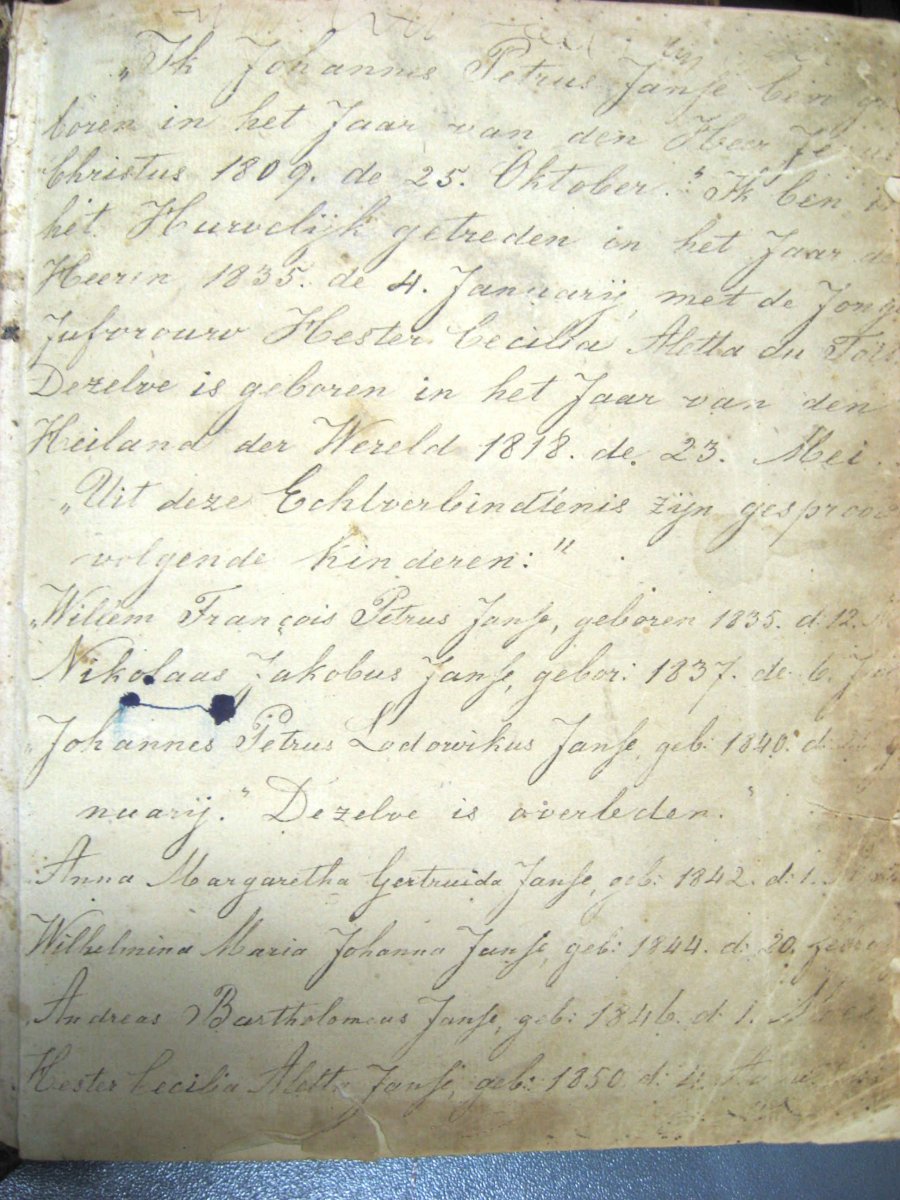 „Ik Johannes Petrus Janse ben ge
boren in het Jaar van den Heer Jesus
Christus 1809. de 25. Oktober." Ik ben in
het Huwelijk getreden in het Jaar
Heeren 1835. de 4. Januarij, met de Jonge
Jufvrouw Hester Cecilia Aletta du Toit
Dezelve is geboren in het Jaar van den
Heiland der Wereld 1818. de 23. Mei.
„Uit deze Echtverbindtenis zijn gesproo
volgende kinderen:"
„Willem François Petrus Janse, geboren 1835. d. 12.
Nikolaas Jakobus Janse, gebor: 1837. de 6.
Johannes Petrus Lodowikus Janse, geb: 1840. d:
nuarij." Dezelve is overleden."
Anna Margaretha Gertruida Janse, geb: 1842. d: 1.
Wilhelmina Maria Johanna Janse, geb: 1844. d: 20.
Andreas Bartholomeus Janse, geb: 1846. d: 1.
Hester Cecilia Aletta Janse, geb: 1850 d: